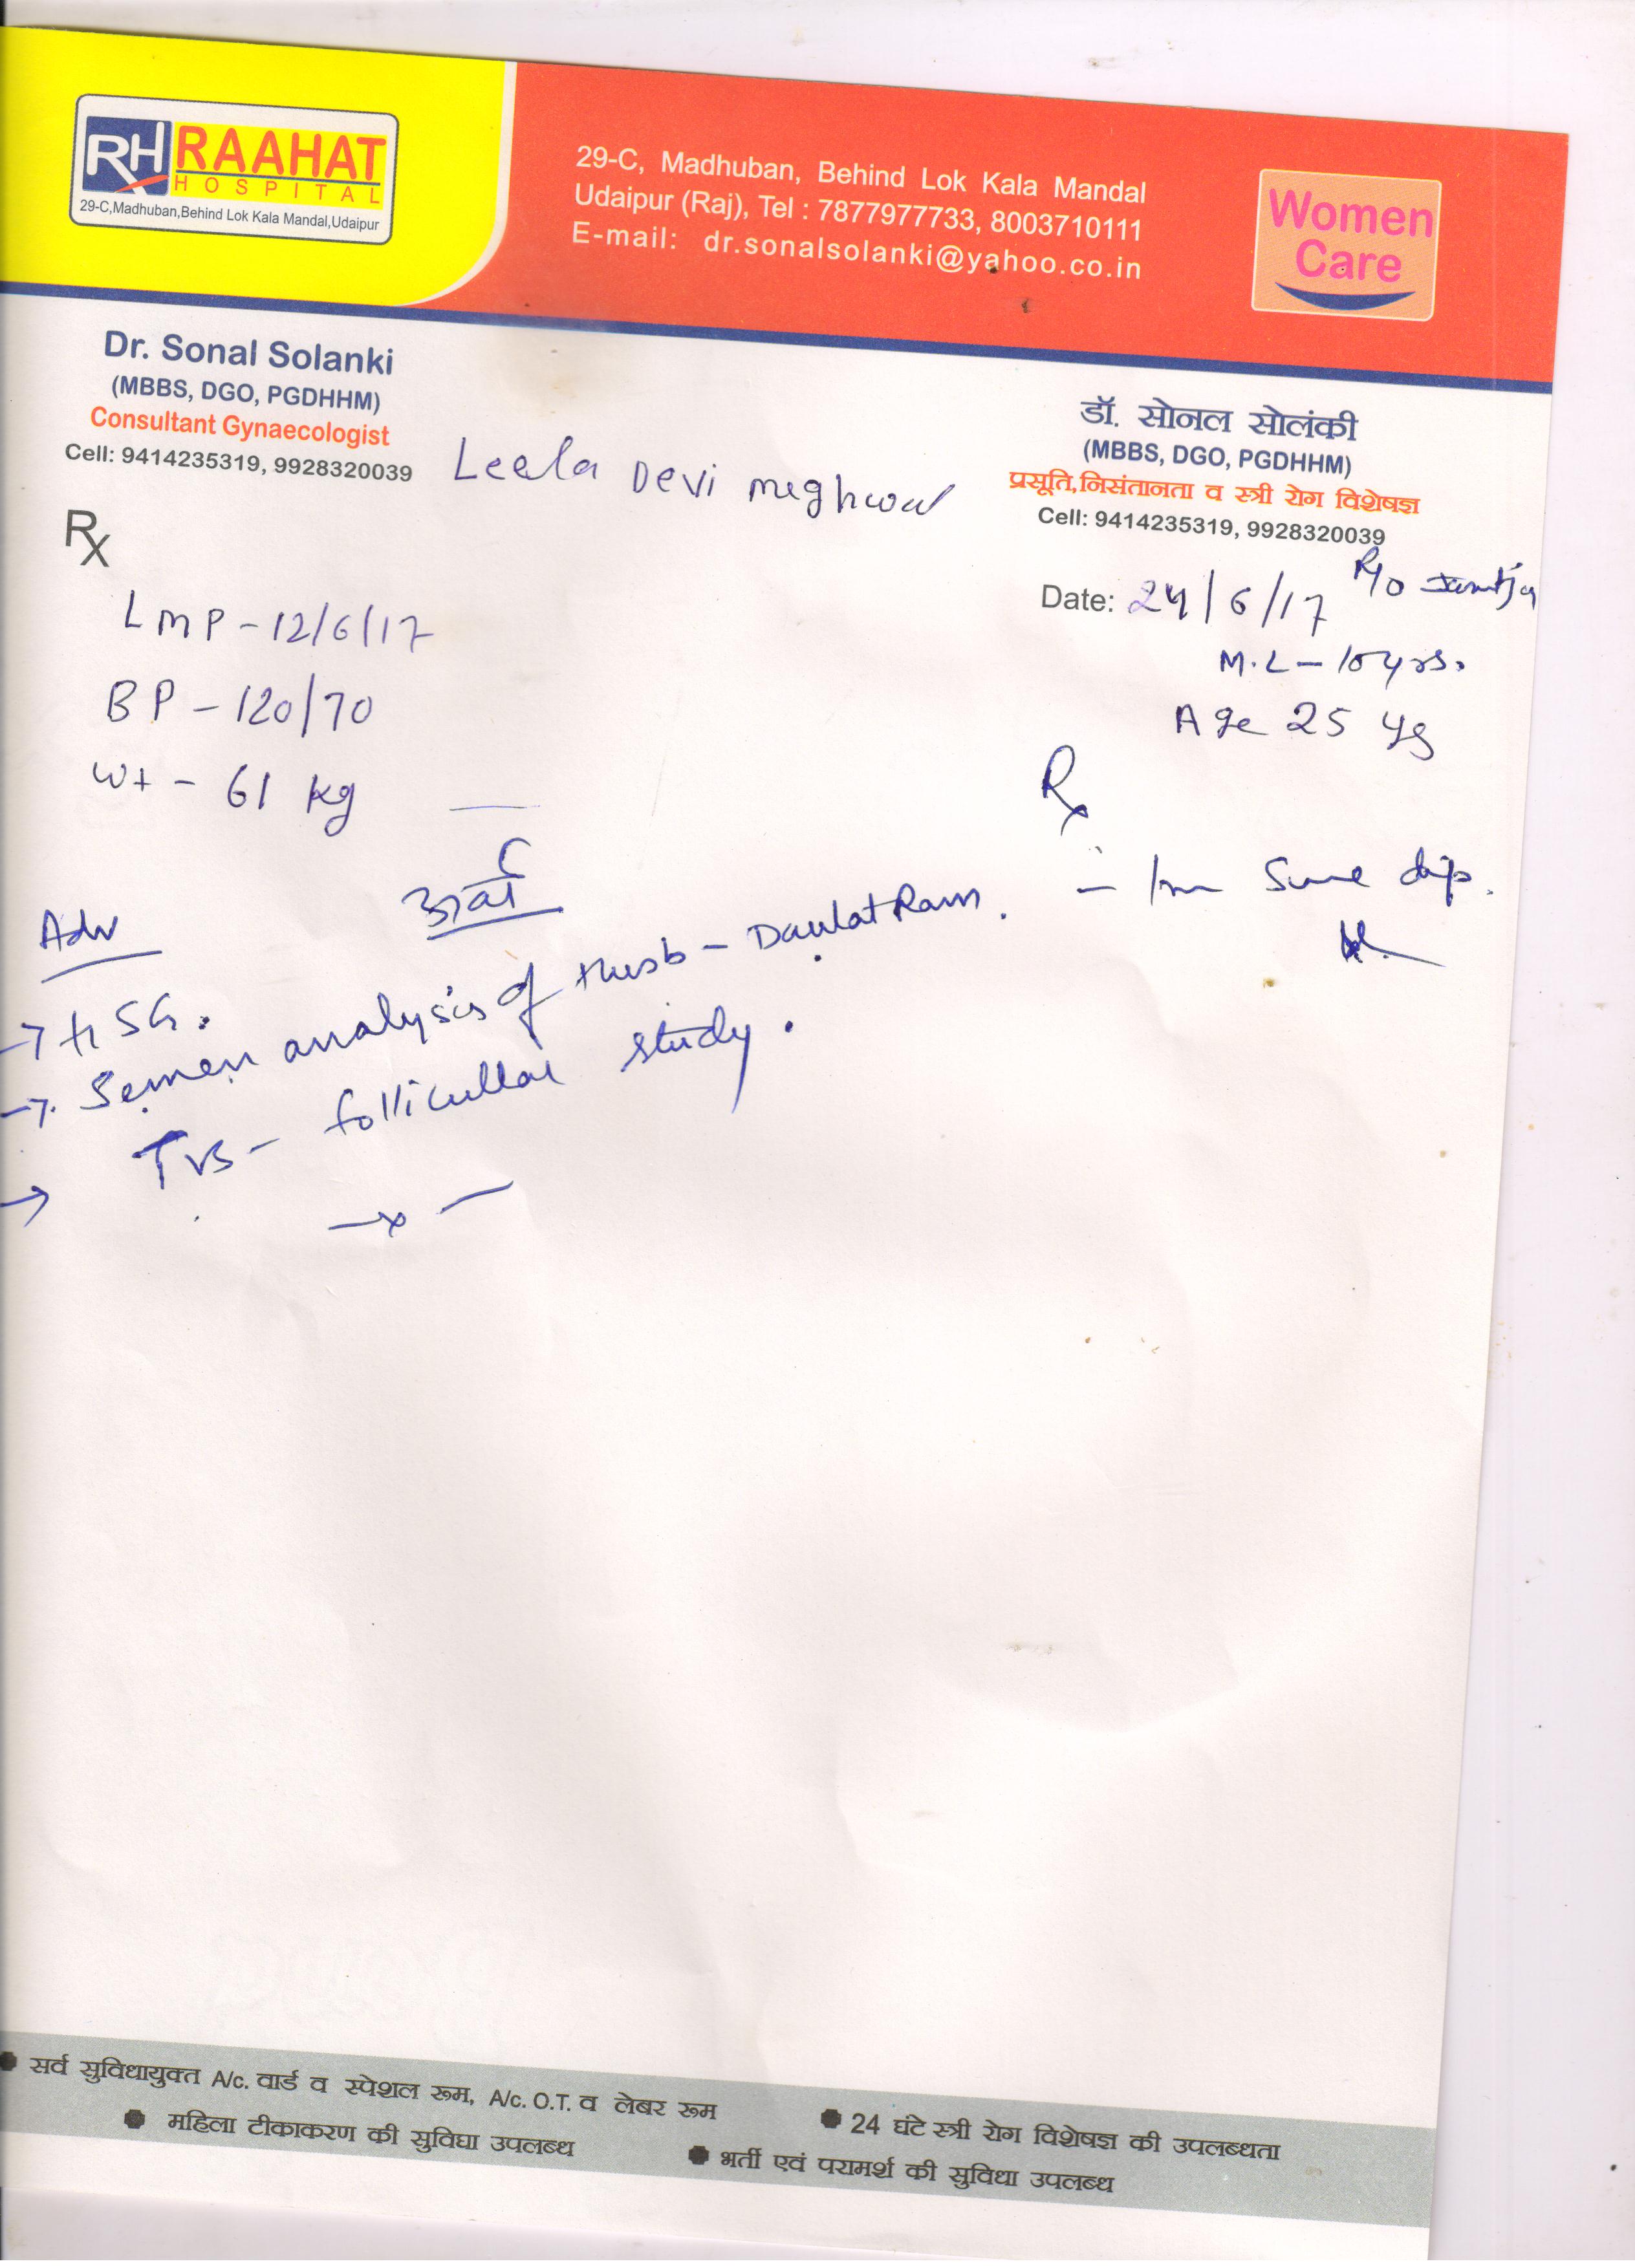 RH RAAHAT
HOSPITAL
29-C,Madhuban,Behind Lok Kala Mandal,Udaipur
29-C, Madhuban, Behind Lok Kala Mandal
Udaipur (Raj), Tel : 7877977733, 8003710111
E-mail: dr.sonalsolanki@yahoo.co.in
Women
Care
Dr. Sonal Solanki
(MBBS, DGO, PGDHHM)
Consultant Gynaecologist
Cell: 9414235319, 9928320039
डॉ. सोनल सोलंकी
(MBBS, DGO, PGDHHM)
प्रसूति,निसंतानता व स्त्री रोग विशेषज्ञ
Cell: 9414235319, 9928320039
Leela Devi meghwal
Rx
Date: 24/6/17 R/o
M.L - 10 yrs.
Age 25 ys
LMP - 12/6/17
BP - 120/70
Wt - 61 kg
Rx
Adv
→ HSG.
→ Semen analysis of Husb - Daulat Ram.
→ TVS - follicullar study.
—x—
सर्व सुविधायुक्त A/c. वार्ड व स्पेशल रूम, A/c. O.T. व लेबर रूम
24 घंटे स्त्री रोग विशेषज्ञ की उपलब्धता
महिला टीकाकरण की सुविधा उपलब्ध
भर्ती एवं परामर्श की सुविधा उपलब्ध